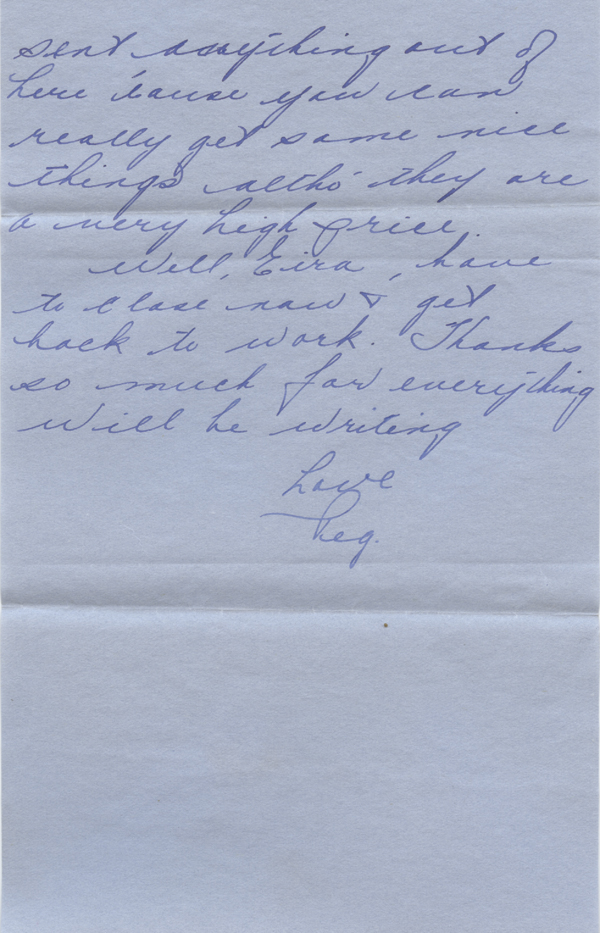 sent anything out of
here 'cause you can
really get some nice
things altho' they are
a very high price.
Well, Eira, have
to close now & get
back to work. Thanks
so much for everything
will be writing
Love
Peg.